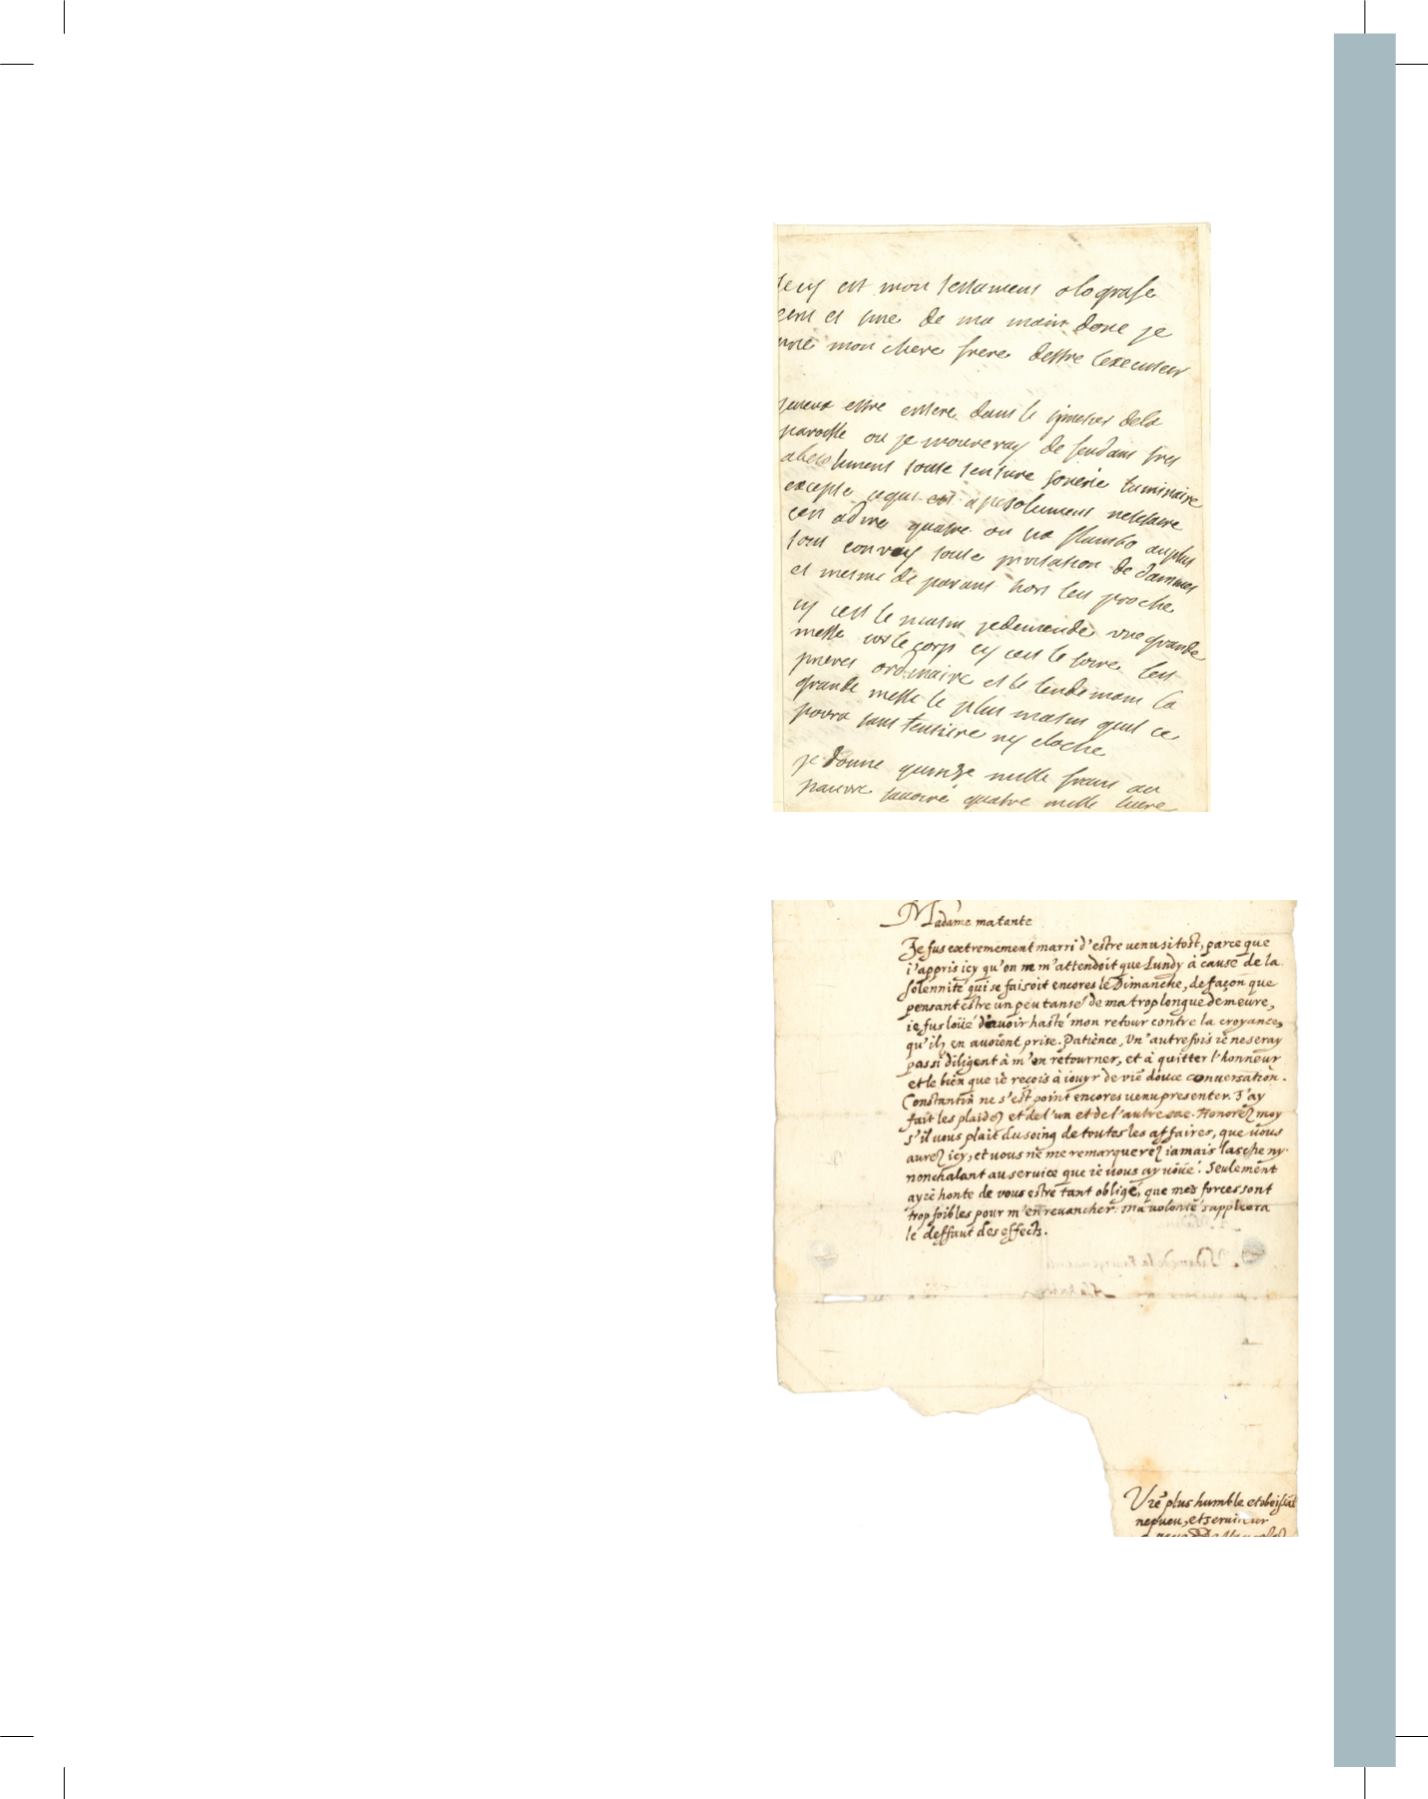 Cecy est mon testamens olografe
et sine de ma main done je
mon chere frere destre lexecuteur
jeveux estre entere dans le simetier dela
paroisse ou je mouveray de fendans tres
absolument toute tenture sonerie luminaire
excepte cequi est apsolument nessaire
cest adire quatre ou six flambo auplus
tout convoy toute invitation de dammes
et mesme de parans hors les proche
cy cest le matin jedemende une grande
messe sur le corps cy cest le soire les
prieres ordinaire et le lendemain la
grande messe le plus matin quil ce
poura sans tenture ny cloche
je donne quinze mille frans au
pauvre savoire quatre mille livre
Madame ma tante
Je fus extremement marri d'estre venu si tost, parce que
i'appris icy qu'on m'attendoit que Lundy à cause de la
solennité qui se faisoit encores le Dimanche, de façon que
pensant estre un peu tansé de ma trop longue demeure,
ie fus loüé d'avoir hasté mon retour contre la croyance,
qu'ilz en avoient prise. Patience, Un'autrefois ie ne seray
pas si diligent à m'en retourner, et à quitter l'honneur
et le bien que ie reçois à iouyr de vre douce conversation.
Constantin ne s'est point encores venu presenter. J'ay
fait les plaidez et de l'un et de l'autre sac. Honorez moy
s'il vous plait du soing de toutes les affaires, que vous
aurez icy, et vous ne me remarquerez iamais lasche ny
nonchalant au service que ie vous ay voüé. Seulement
ay ie honte de vous estre tant obligé, que mes forces sont
trop foibles pour m'en revancher. Ma volonté suppleera
le deffaut des effects.
Vre plus humble et obeissāt
nepveu, et serviteur